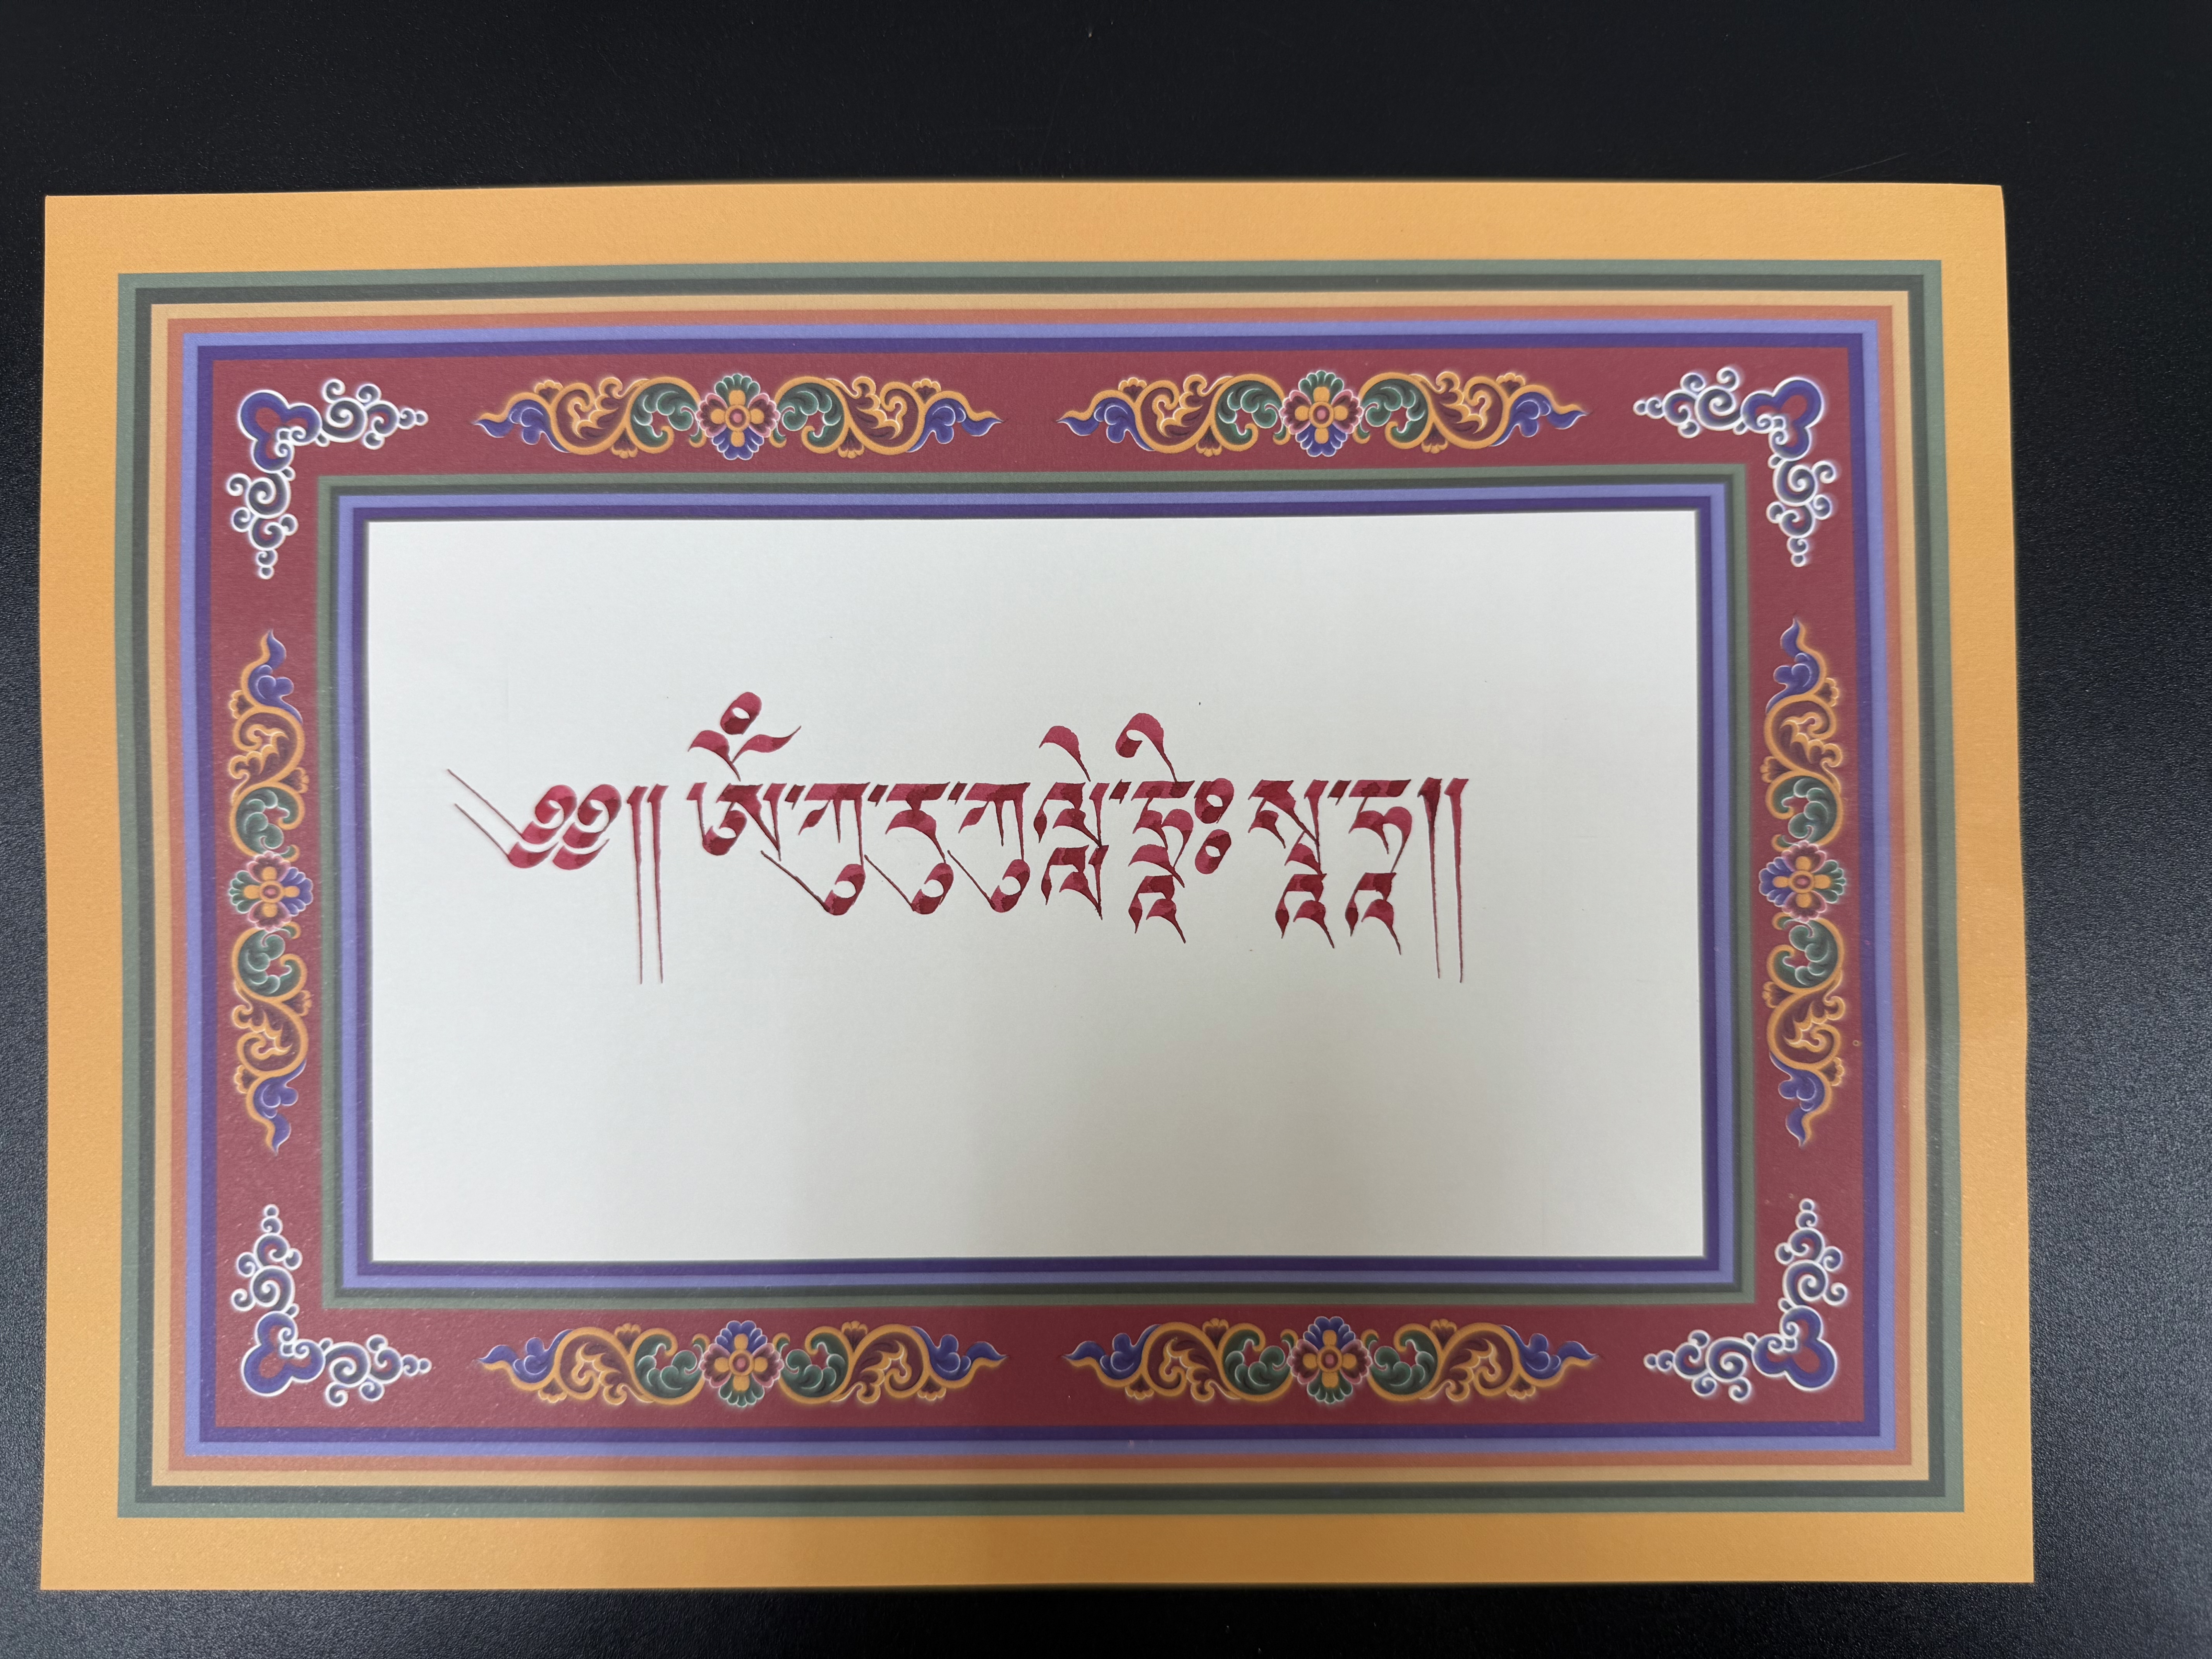 ༄༅།། ཨོཾ་ཀུ་རུ་ཀུལླེ་ཧྲཱིཿ སྭཱ་ཧཱ།།